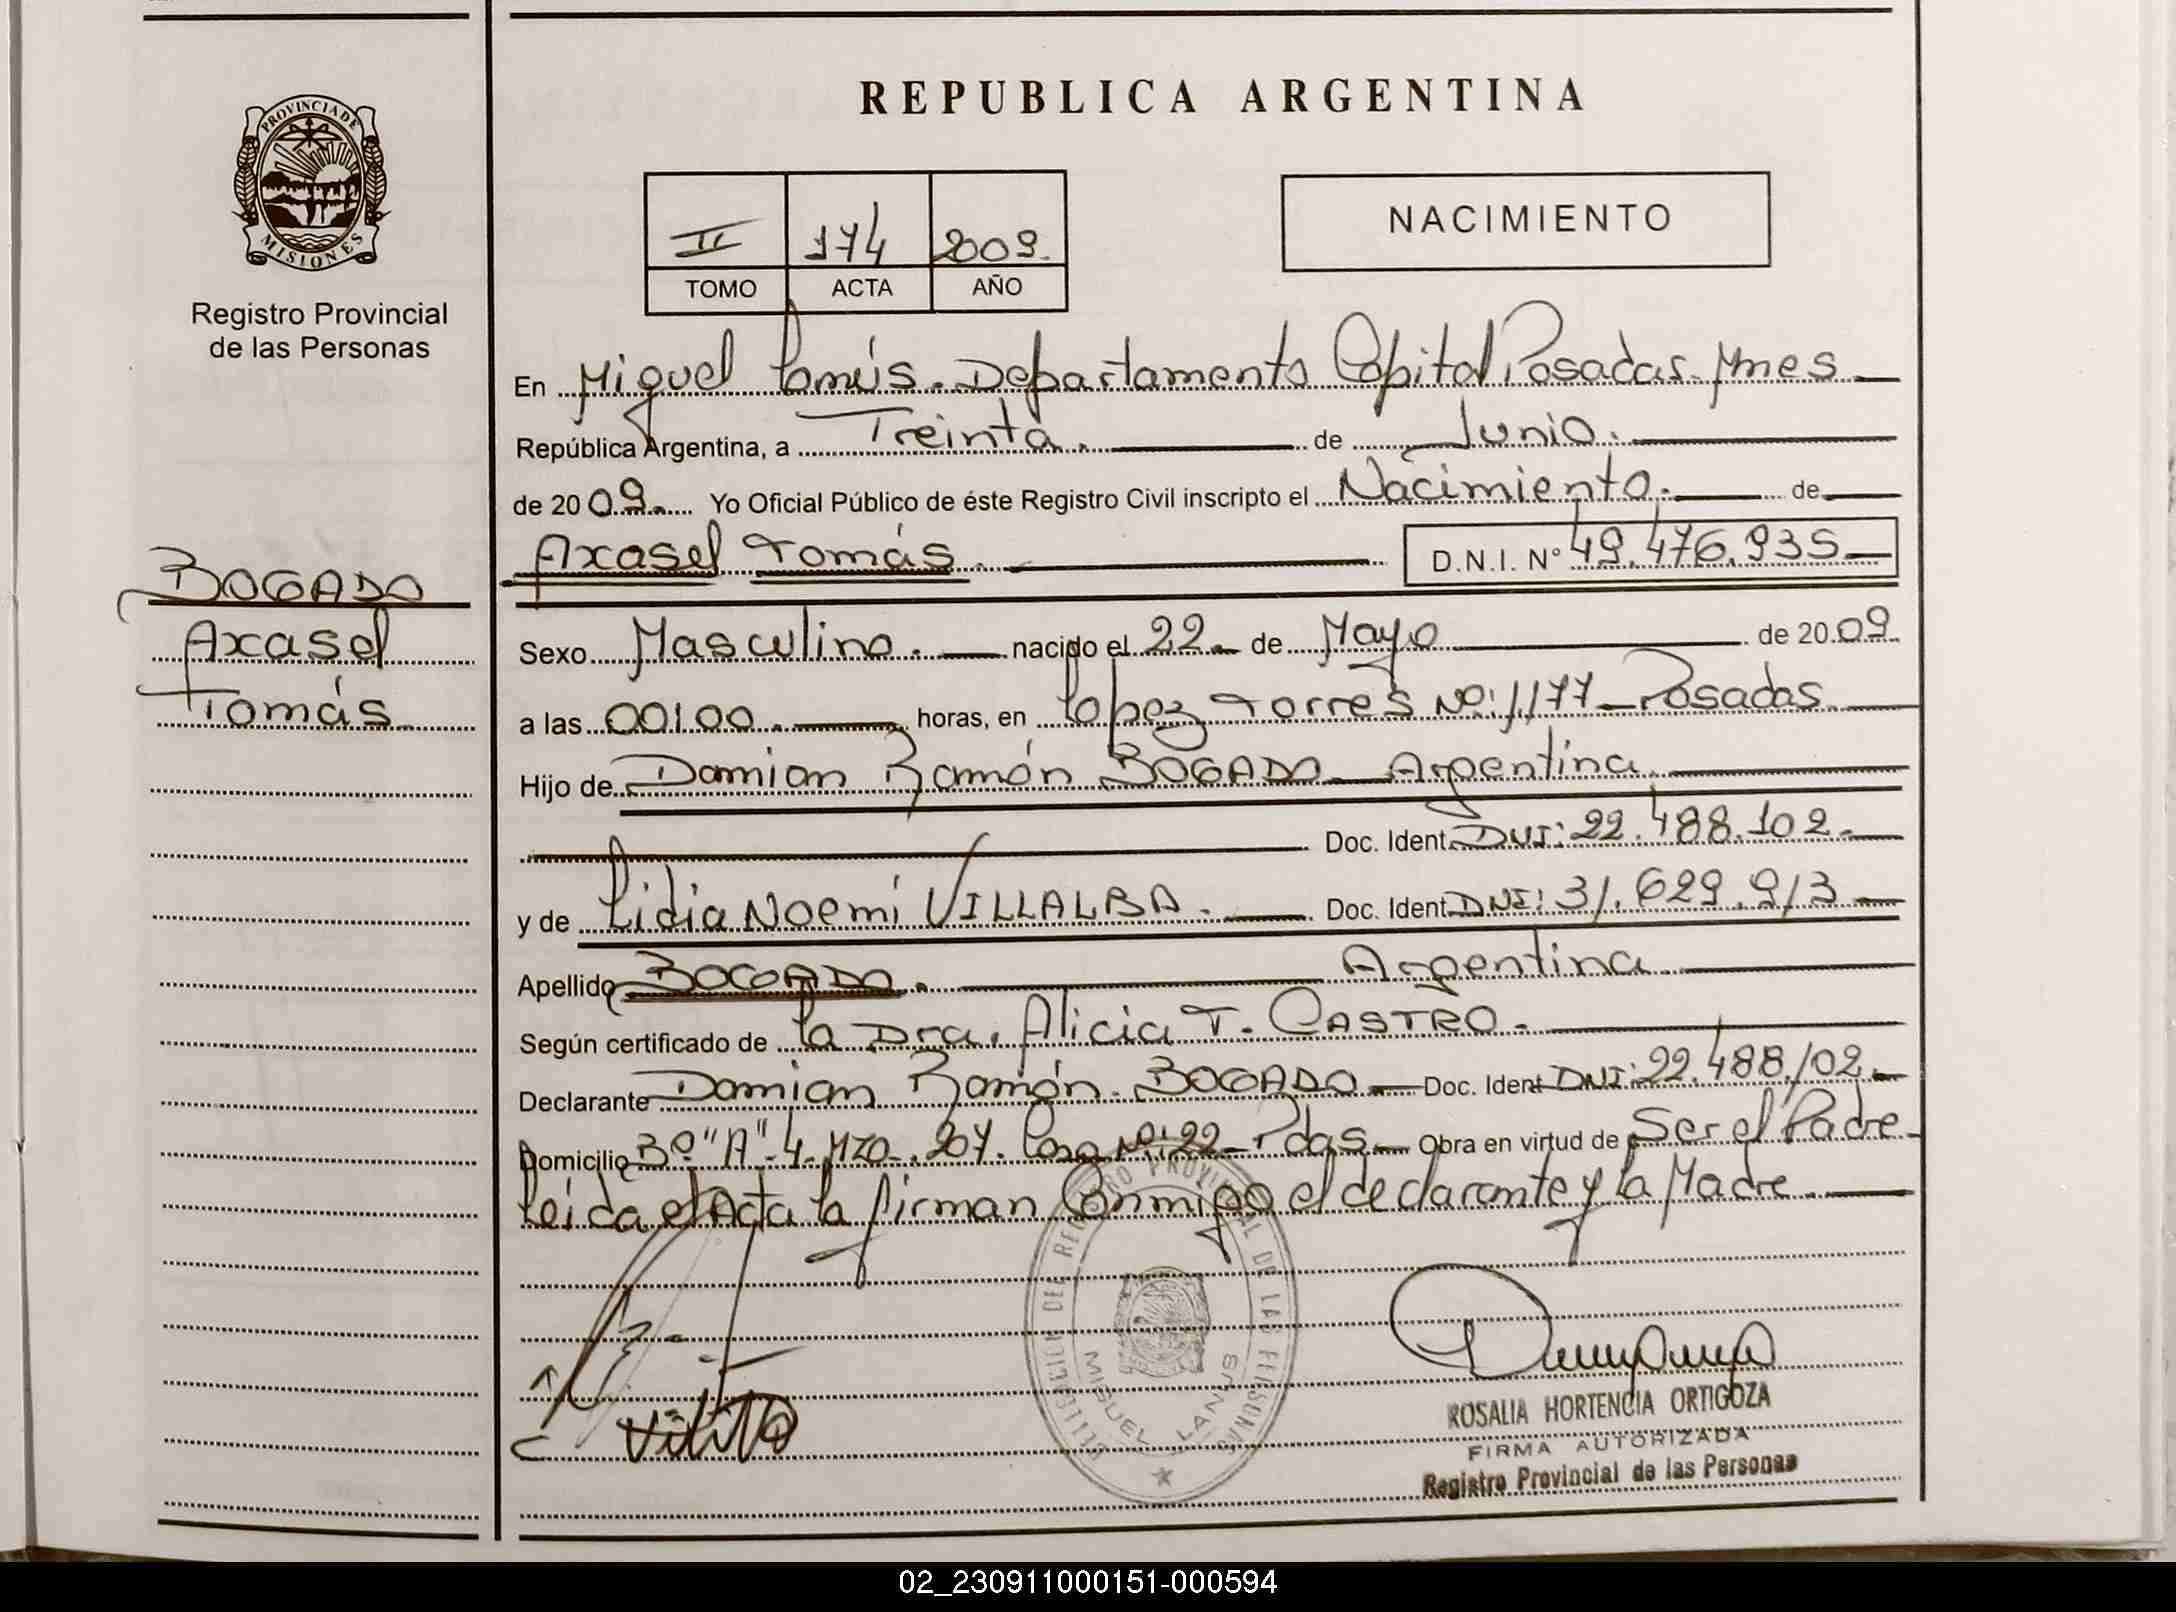 REPUBLICA ARGENTINA
PROVINCIA DE
MISIONES
Registro Provincial
de las Personas
II 174 2009.
TOMO ACTA AÑO
NACIMIENTO
En Miguel Lanús. Departamento Capital Posadas. Mnes
República Argentina, a Treinta. de Junio.
de 2009. Yo Oficial Público de éste Registro Civil inscripto el Nacimiento. de
Axasel Tomás. D.N.I. Nº 49.476.935
BOGADO
Axasel
Tomás
Sexo Masculino. nacido el 22 de Mayo de 2009
a las 00:00. horas, en Lopez Torres Nº: 1177 Posadas
Hijo de Damian Ramón BOGADO Argentina.
Doc. Ident DNI: 22.488.102
y de Lidia Noemí VILLALBA. Doc. Ident DNI: 31.629.913
Apellido BOGADO. Argentina
Según certificado de la Dra. Alicia T. CASTRO.
Declarante Damian Ramón. BOGADO Doc. Ident DNI: 22.488.102
Domicilio Bº "A" 4 MZO. 207. Casa Nº: 22 Pdas Obra en virtud de Ser el Padre
Leida el Acta la firman Conmigo el declarante y la Madre.
DELEGACION DEL REGISTRO PROVINCIAL DE LAS PERSONAS
MIGUEL LANUS
ROSALIA HORTENCIA ORTIGOZA
FIRMA AUTORIZADA
Registro Provincial de las Personas
02_230911000151-000594